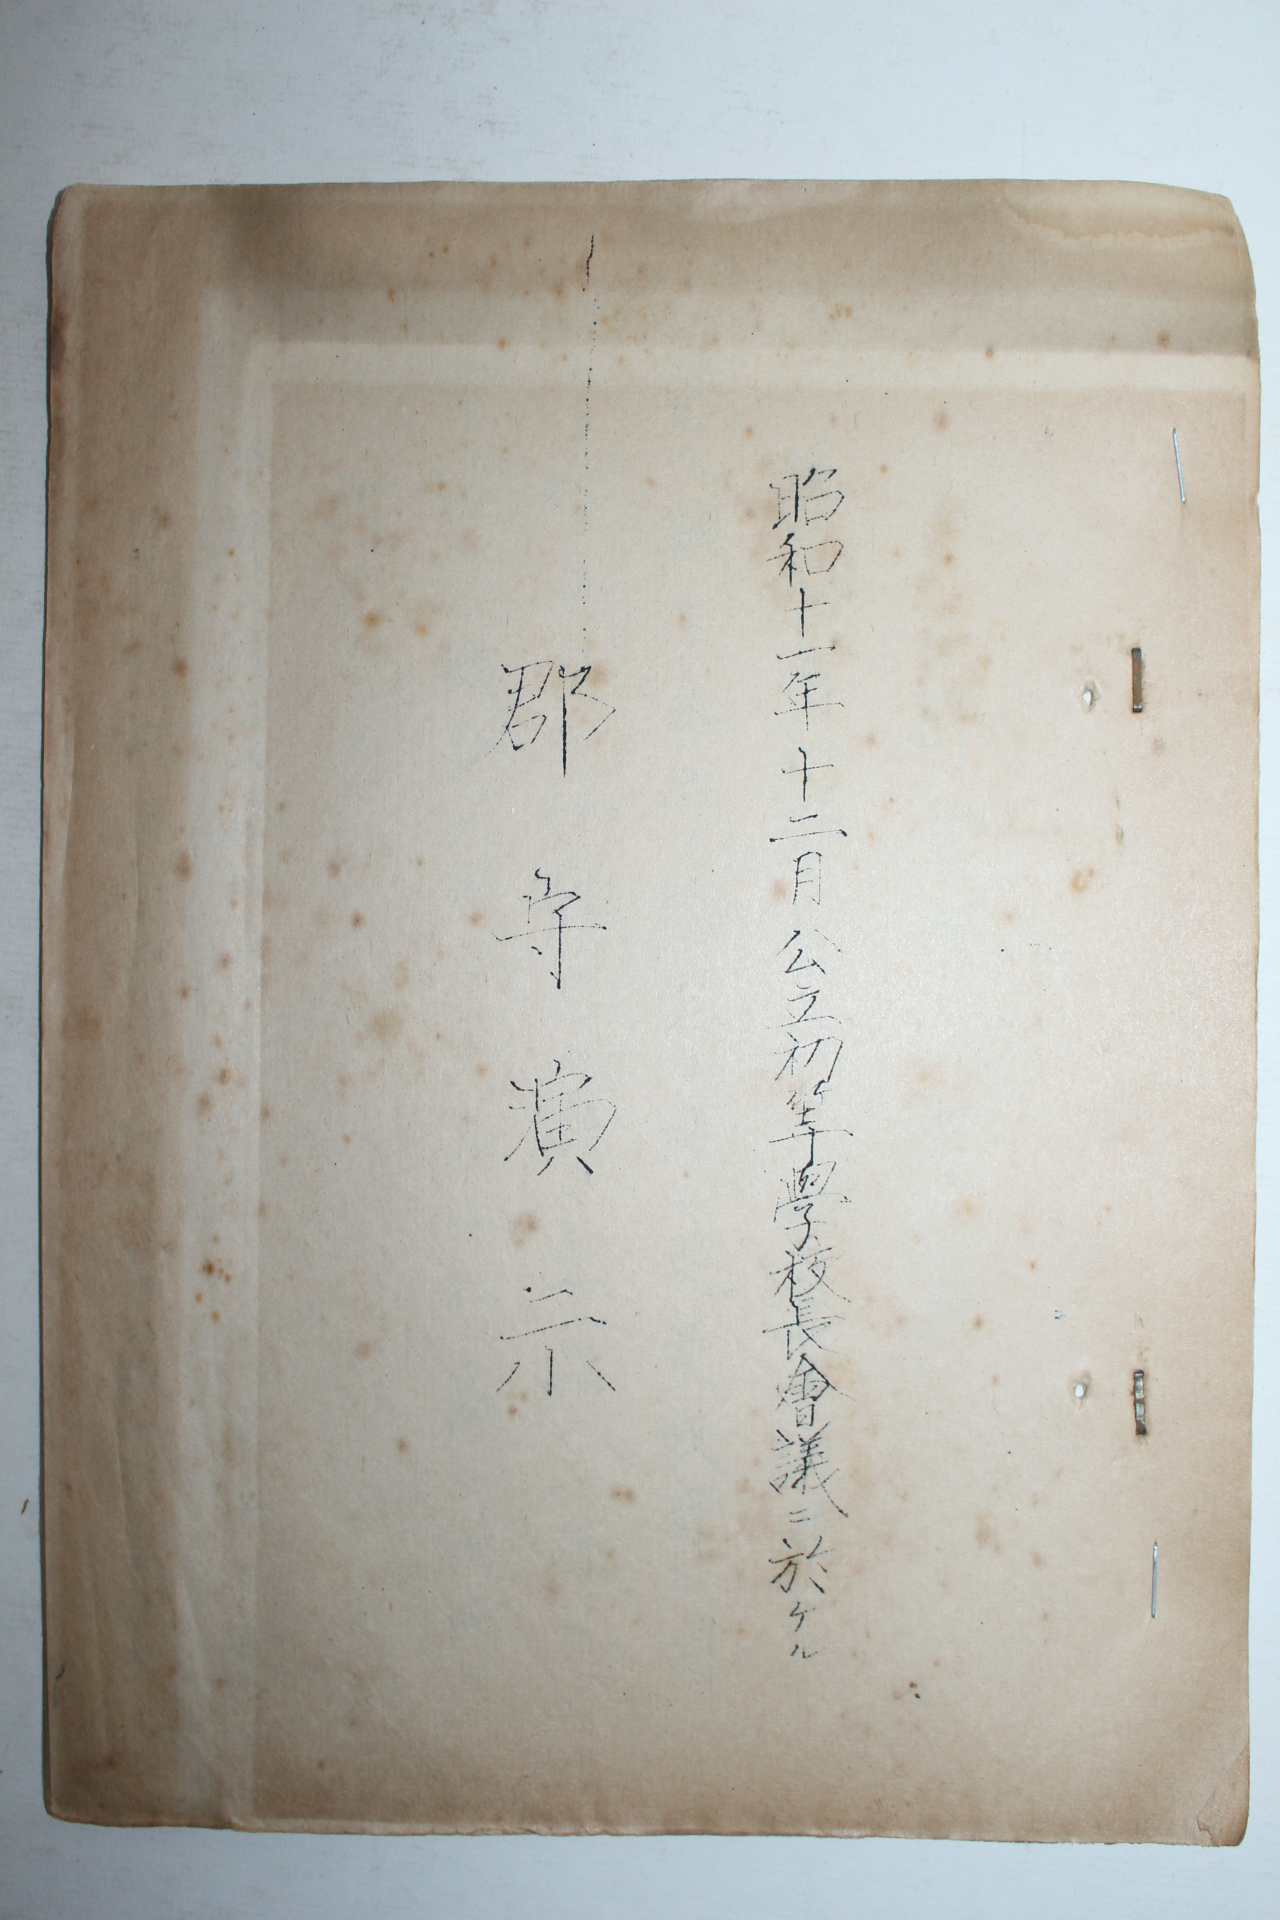 昭和十一年十二月公立初等學校長會議ニ於ケル
郡守演示